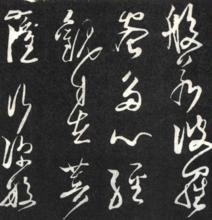 般若波羅
蜜多心經
觀自在菩
薩行深般